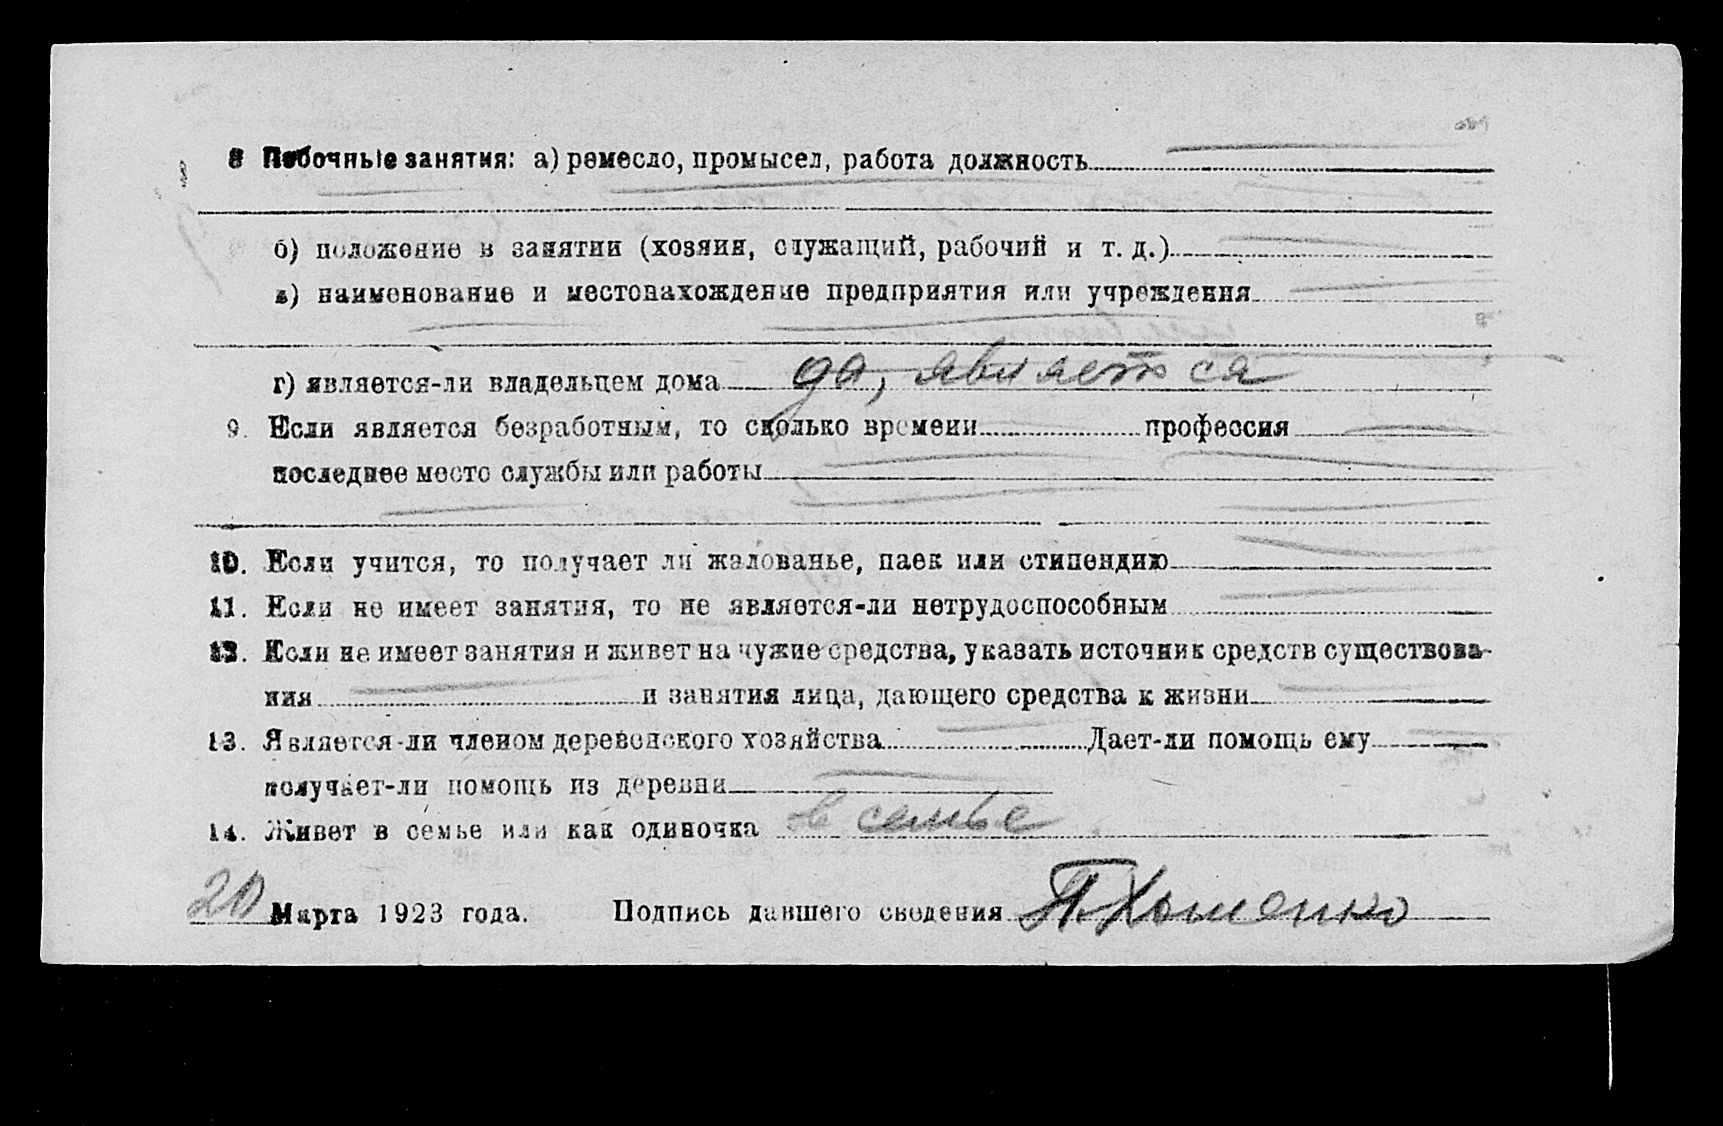 8 Побочные занятия: а) ремесло, промысел, работа должность
б) положение в занятии (хозяин, служащий, рабочий и т. д.)
в) наименование и местонахождение предприятия или учреждения
г) является-ли владельцем дома да, является
9. Если является безработным, то сколько времени профессия
последнее место службы или работы
10. Если учится, то получает ли жалованье, паек или стипендию
11. Если не имеет занятия, то не является-ли нетрудоспособным
12. Если не имеет занятия и живет на чужие средства, указать источник средств существова-
ния и занятия лица, дающего средства к жизни
13. Является-ли членом деревенского хозяйства Дает-ли помощь ему
получает-ли помощь из деревни
14. Живет в семье или как одиночка в семье
20 Марта 1923 года. Подпись давшего сведения П. Хоменко